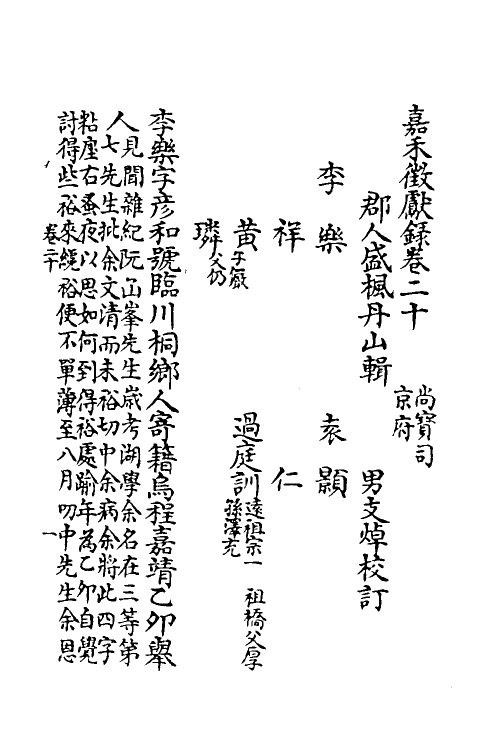 嘉禾徵獻錄卷二十
尚寶司
京府
郡人盛楓丹山輯 男支焯校訂
李樂 袁顥
祥 仁
黃 子嚴 過庭訓 遠祖宗一 祖橋父厚
孫澤充
璘 父仍
李樂字彥和號臨川桐鄉人寄籍烏程嘉靖乙卯舉
人見聞雜紀阮函峯先生歲考湖學余名在三等第
七先生批余文清而未裕切中余病余將此四字
粘座右蚤夜以思如何到得裕處踰年為乙卯自覺
討得些裕來纔裕便不單薄至八月叨中先生余恩
卷二十 一